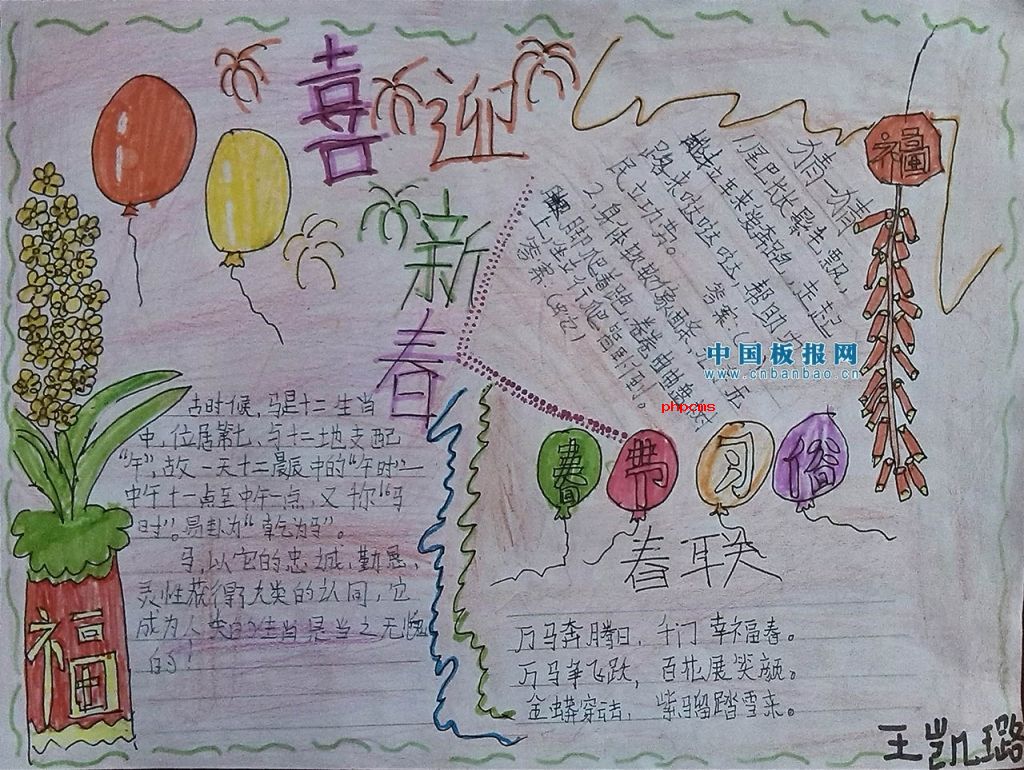 喜迎
新
春
福
猜一猜
1尾巴长长鬃毛飘,
路来哒哒哒,帮助
民立功劳。答案:(
2、身体软软像面条,
脚爬着跑,
答案:(蛇)
中国板报网
www.cnbanbao.cn
phpcms
古时候,马是十二生肖
中,位居第七、与十二地支配
"午",故一天十二晨辰中的"午时"—
中午十一点至中午一点,又称"马
时"。易卦为"乾为马"。
马,以它的忠诚,勤恳、
灵性获得了人类的认同,它
成为人类的生肖是当之无愧
的!
春节习俗
春联
万马奔腾日,千门幸福春。
万马争飞跃,百花展笑颜。
金蟒穿云去,紫骝踏雪来。
福
王凯璐